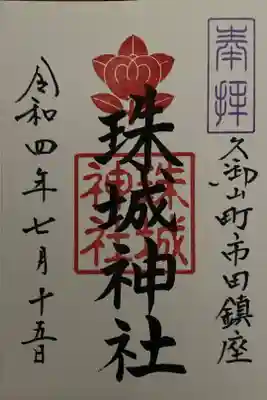 奉拝
久御山町市田鎮座
珠城神社
珠城神社
令和四年七月十五日